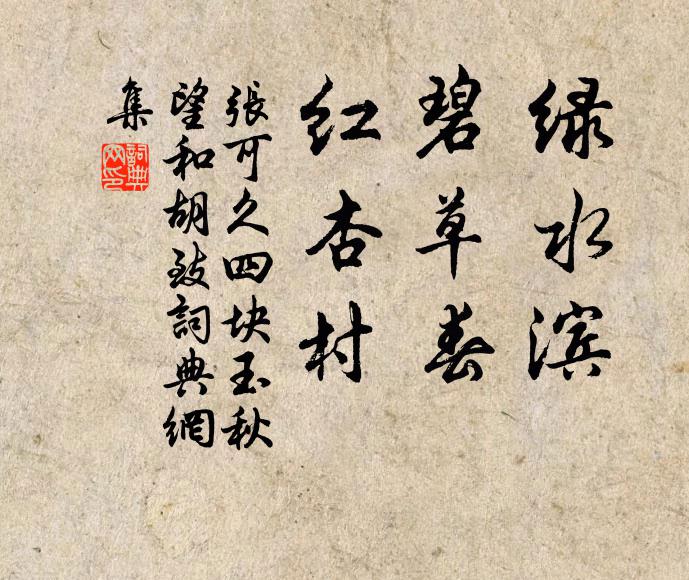 绿水滨
碧草春
红杏村
張可久四块玉秋
望和胡致詞典網
集
詞典
网印